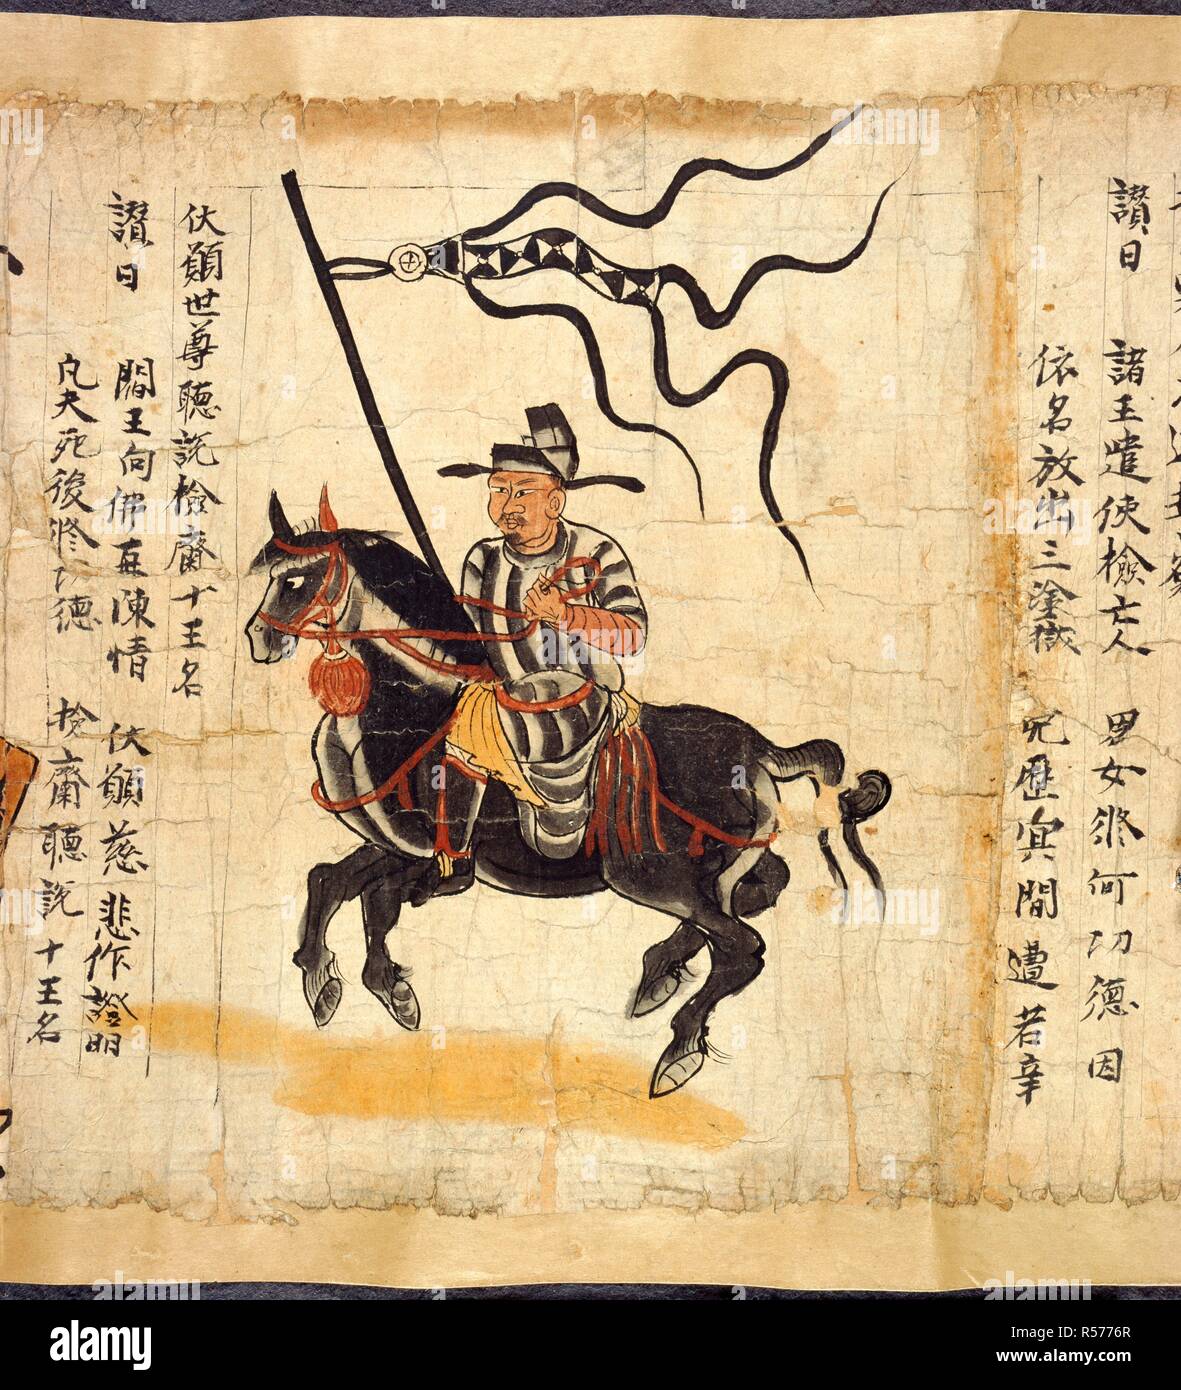 讃曰 諸王遣使檢亡人 男女修何功德因
依名放出三塗獄 免歷冥間遭苦辛
伏願世尊聽說檢齋十王名
讃曰 閻王向佛再陳情 伏願慈悲作證明
凡夫死後修功德 撿齋聽說十王名
alamy
Image ID: R5776R
www.alamy.com